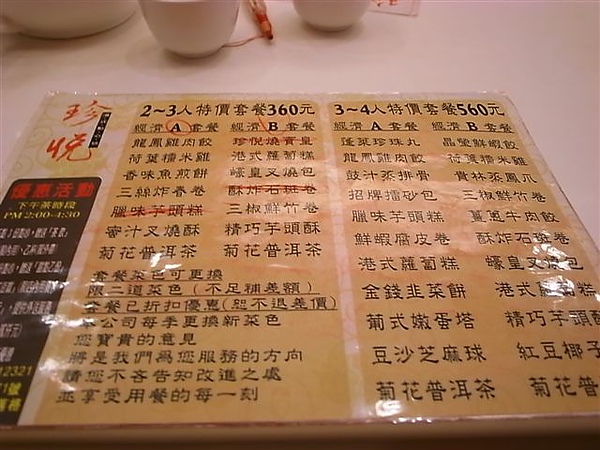 珍悅
優惠活動
下午茶時段
PM 2:00-4:30
12321
2~3人特價套餐360元
經濟A套餐 經濟B套餐
龍鳳雞肉餃 珍悅燒賣皇
荷葉糯米雞 港式蘿蔔糕
香味魚煎餅 蠔皇叉燒包
三絲炸春卷 酥炸石斑卷
臘味芋頭糕 三椒鮮竹卷
蜜汁叉燒酥 精巧芋頭酥
菊花普洱茶 菊花普洱茶
套餐菜色可更換
限二道菜色(不足補差額)
套餐已折扣優惠(恕不退差價)
本公司每季更換新菜色
您寶貴的意見
將是我們為您服務的方向
請您不吝告知改進之處
並享受用餐的每一刻
3~4人特價套餐560元
經濟A套餐 經濟B套餐
蓬萊珍珠丸 晶瑩鮮蝦餃
龍鳳雞肉餃 荷葉糯米雞
豉汁蒸排骨 貴林蒸鳳爪
招牌擂砂包 三椒鮮竹卷
臘味芋頭糕 薑蔥牛肉餃
鮮蝦腐皮卷 酥炸石斑卷
港式蘿蔔糕 蠔皇叉燒
金錢韭菜餅 港式蘿蔔
葡式嫩蛋塔 精巧芋頭酥
豆沙芝麻球 紅豆椰子
菊花普洱茶 菊花普